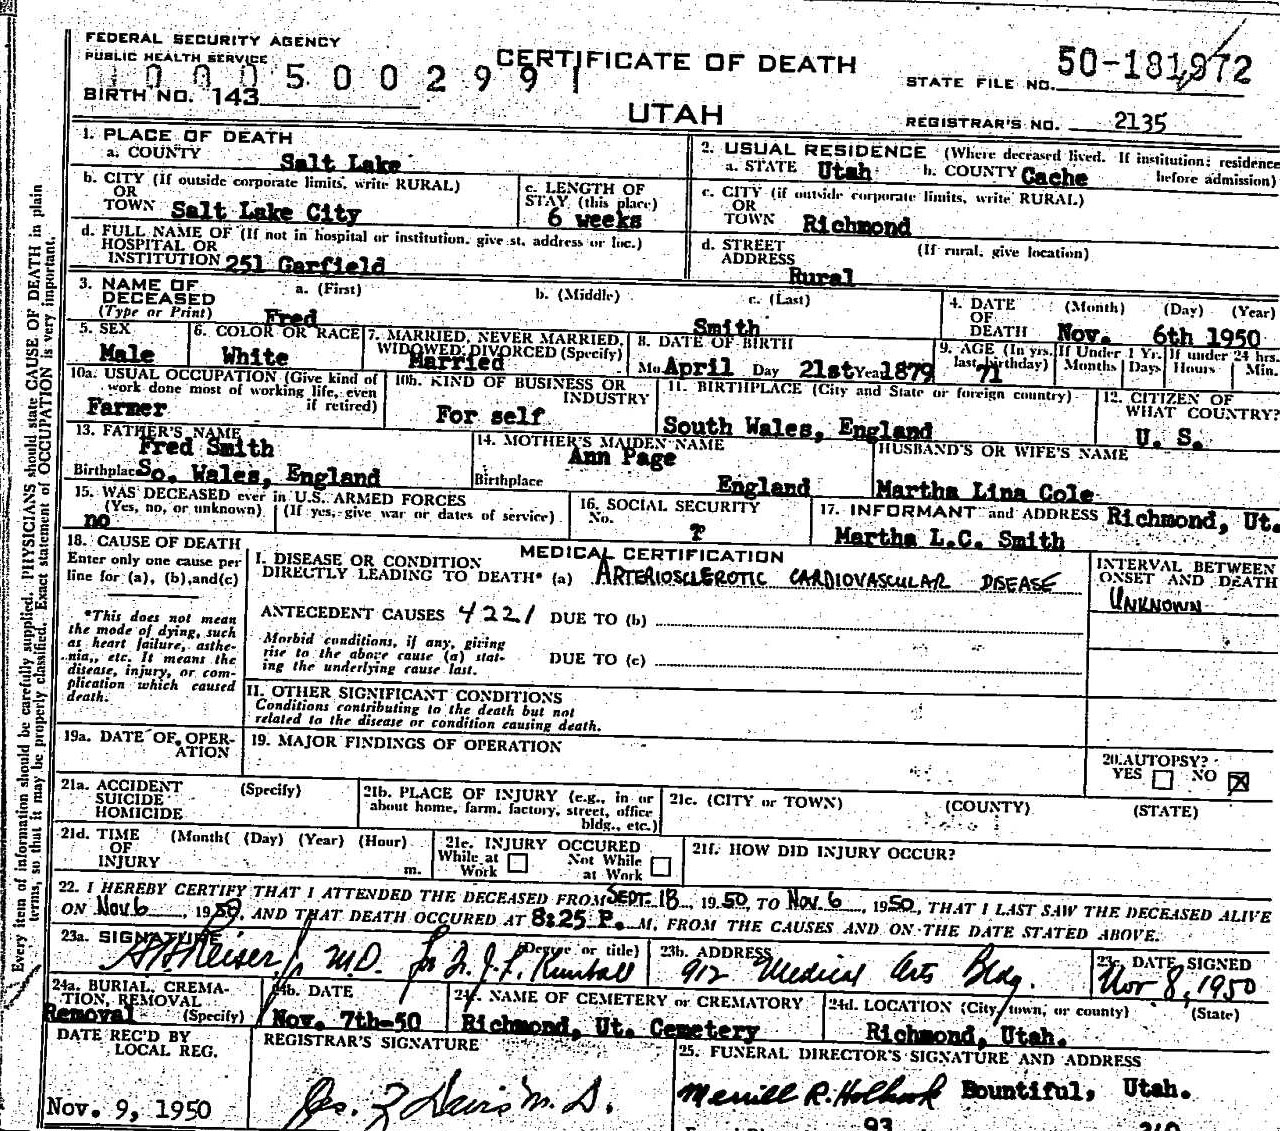 FEDERAL SECURITY AGENCY
PUBLIC HEALTH SERVICE
CERTIFICATE OF DEATH
UTAH
STATE FILE NO. 50-181972
10005002991
BIRTH NO. 143
REGISTRAR'S NO. 2135
Every item of information should be carefully supplied. PHYSICIANS should state CAUSE OF DEATH in plain
terms, so that it may be properly classified. Exact statement of OCCUPATION is very important.
1. PLACE OF DEATH
a. COUNTY Salt Lake
2. USUAL RESIDENCE (Where deceased lived. If institution: residence
a. STATE Utah b. COUNTY Cache before admission)
b. CITY (If outside corporate limits, write RURAL)
OR
TOWN Salt Lake City
c. LENGTH OF
STAY (this place)
6 weeks
c. CITY (if outside corporate limits, write RURAL)
OR
TOWN Richmond
d. FULL NAME OF (If not in hospital or institution, give st. address or loc.)
HOSPITAL OR
INSTITUTION 251 Garfield
d. STREET (If rural, give location)
ADDRESS
Rural
3. NAME OF
DECEASED
(Type or Print)
a. (First) b. (Middle) c. (Last)
Fred Smith
4. DATE (Month) (Day) (Year)
OF
DEATH Nov. 6th 1950
5. SEX
Male
6. COLOR OR RACE
White
7. MARRIED, NEVER MARRIED,
WIDOWED, DIVORCED (Specify)
Married
8. DATE OF BIRTH
Mo. April Day 21st Year 1879
9. AGE (In yrs. If Under 1 Yr. If under 24 hrs.
last birthday) Months Days Hours Min.
71
10a. USUAL OCCUPATION (Give kind of
work done most of working life, even
if retired)
Farmer
10b. KIND OF BUSINESS OR
INDUSTRY
For self
11. BIRTHPLACE (City and State or foreign country)
South Wales, England
12. CITIZEN OF
WHAT COUNTRY?
U. S.
13. FATHER'S NAME
Fred Smith
Birthplace So. Wales, England
14. MOTHER'S MAIDEN NAME
Ann Page
Birthplace England
HUSBAND'S OR WIFE'S NAME
Martha Lina Cole
15. WAS DECEASED ever in U.S. ARMED FORCES
(Yes, no, or unknown) (If yes, give war or dates of service)
no
16. SOCIAL SECURITY
No.
?
17. INFORMANT and ADDRESS Richmond, Ut.
Martha L.C. Smith
18. CAUSE OF DEATH
Enter only one cause per
line for (a), (b), and (c)
*This does not mean
the mode of dying, such
as heart failure, asthe-
nia, etc. It means the
disease, injury, or com-
plication which caused
death.
MEDICAL CERTIFICATION
I. DISEASE OR CONDITION
DIRECTLY LEADING TO DEATH* (a) ARTERIOSCLEROTIC CARDIOVASCULAR DISEASE
ANTECEDENT CAUSES 4221 DUE TO (b)
Morbid conditions, if any, giving
rise to the above cause (a) stat-
ing the underlying cause last.
DUE TO (c)
II. OTHER SIGNIFICANT CONDITIONS
Conditions contributing to the death but not
related to the disease or condition causing death.
INTERVAL BETWEEN
ONSET AND DEATH
UNKNOWN
19a. DATE OF OPER-
ATION
19. MAJOR FINDINGS OF OPERATION
20. AUTOPSY?
YES NO X
21a. ACCIDENT (Specify)
SUICIDE
HOMICIDE
21b. PLACE OF INJURY (e.g., in or
about home, farm, factory, street, office
bldg., etc.)
21c. (CITY or TOWN) (COUNTY) (STATE)
21d. TIME (Month( (Day) (Year) (Hour)
OF
INJURY m.
21e. INJURY OCCURED
While at Not While
Work at Work
21f. HOW DID INJURY OCCUR?
22. I HEREBY CERTIFY THAT I ATTENDED THE DECEASED FROM SEPT. 18, 1950, TO Nov. 6, 1950, THAT I LAST SAW THE DECEASED ALIVE
ON Nov 6, 1950, AND THAT DEATH OCCURED AT 8:25 P. M., FROM THE CAUSES AND ON THE DATE STATED ABOVE.
23a. SIGNATURE (Degree or title)
M.D. for Kimball
23b. ADDRESS
912 Medical Arts Bldg.
23c. DATE SIGNED
Nov 8, 1950
24a. BURIAL, CREMA-
TION, REMOVAL
Removal (Specify)
24b. DATE
Nov. 7th-50
24c. NAME OF CEMETERY or CREMATORY
Richmond, Ut. Cemetery
24d. LOCATION (City, town, or county) (State)
Richmond, Utah.
DATE REC'D BY
LOCAL REG.
Nov. 9, 1950
REGISTRAR'S SIGNATURE
Jos. Z Davis M. D.
25. FUNERAL DIRECTOR'S SIGNATURE AND ADDRESS
Merrill R. Holbrook Bountiful, Utah.
93